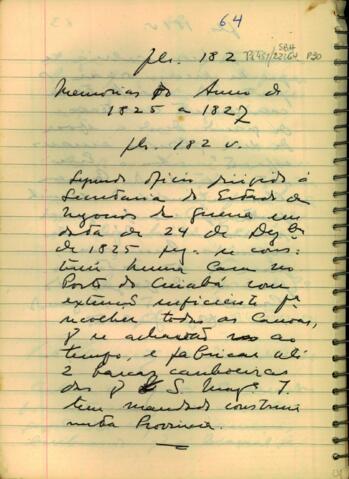 64
fls. 182
SBH
Pi 451/22164 P30
Memorias do Anno de
1825 a 1827
fls. 182 v.
Segundo oficio dirigido á
Secretaria de Estado de
Negocios da Guerra em
data de 24 de Dezbro
de 1825 pa. se cons-
truir huma Casa no
Porto do Cuiabá com
extensão suficiente pa
recolher todas as Canoas,
q se achavão no ao
tempo, e fabricar até
2 barcas canhoeiras
das q S. Mage I.
tem mandado construir
nesta Provincia.